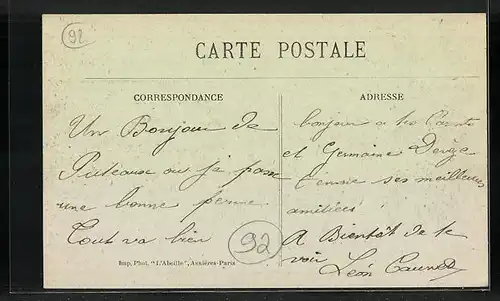 92
CARTE POSTALE
CORRESPONDANCE
ADRESSE
Un Bonjour de
Puteaux ou je passe
une bonne
Tout va bien
92
Imp. Phot. "L'Abeille", Asnières-Paris
bonjour a tes
et Germaine
ses meilleures
amitiées
A Bientôt de te
voir
Léon